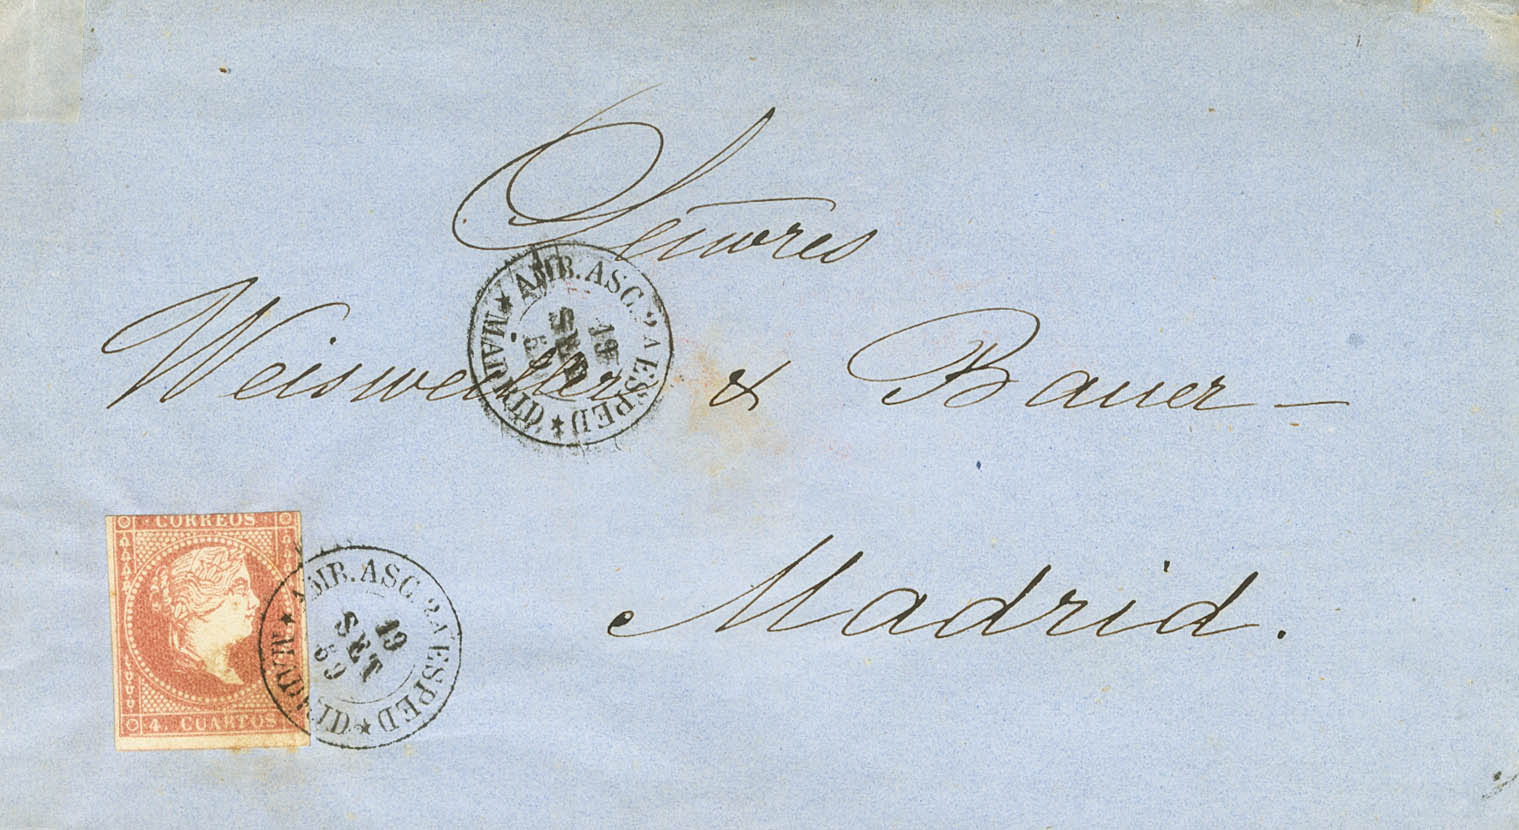 Señores
Weisweiller & Bauer -
Madrid.
AMB. ASC. 2A ESPED
MADRID
19
SET
CORREOS
4. CUARTOS
AMB. ASC. 2A ESPED
MADRID
19
SET
59